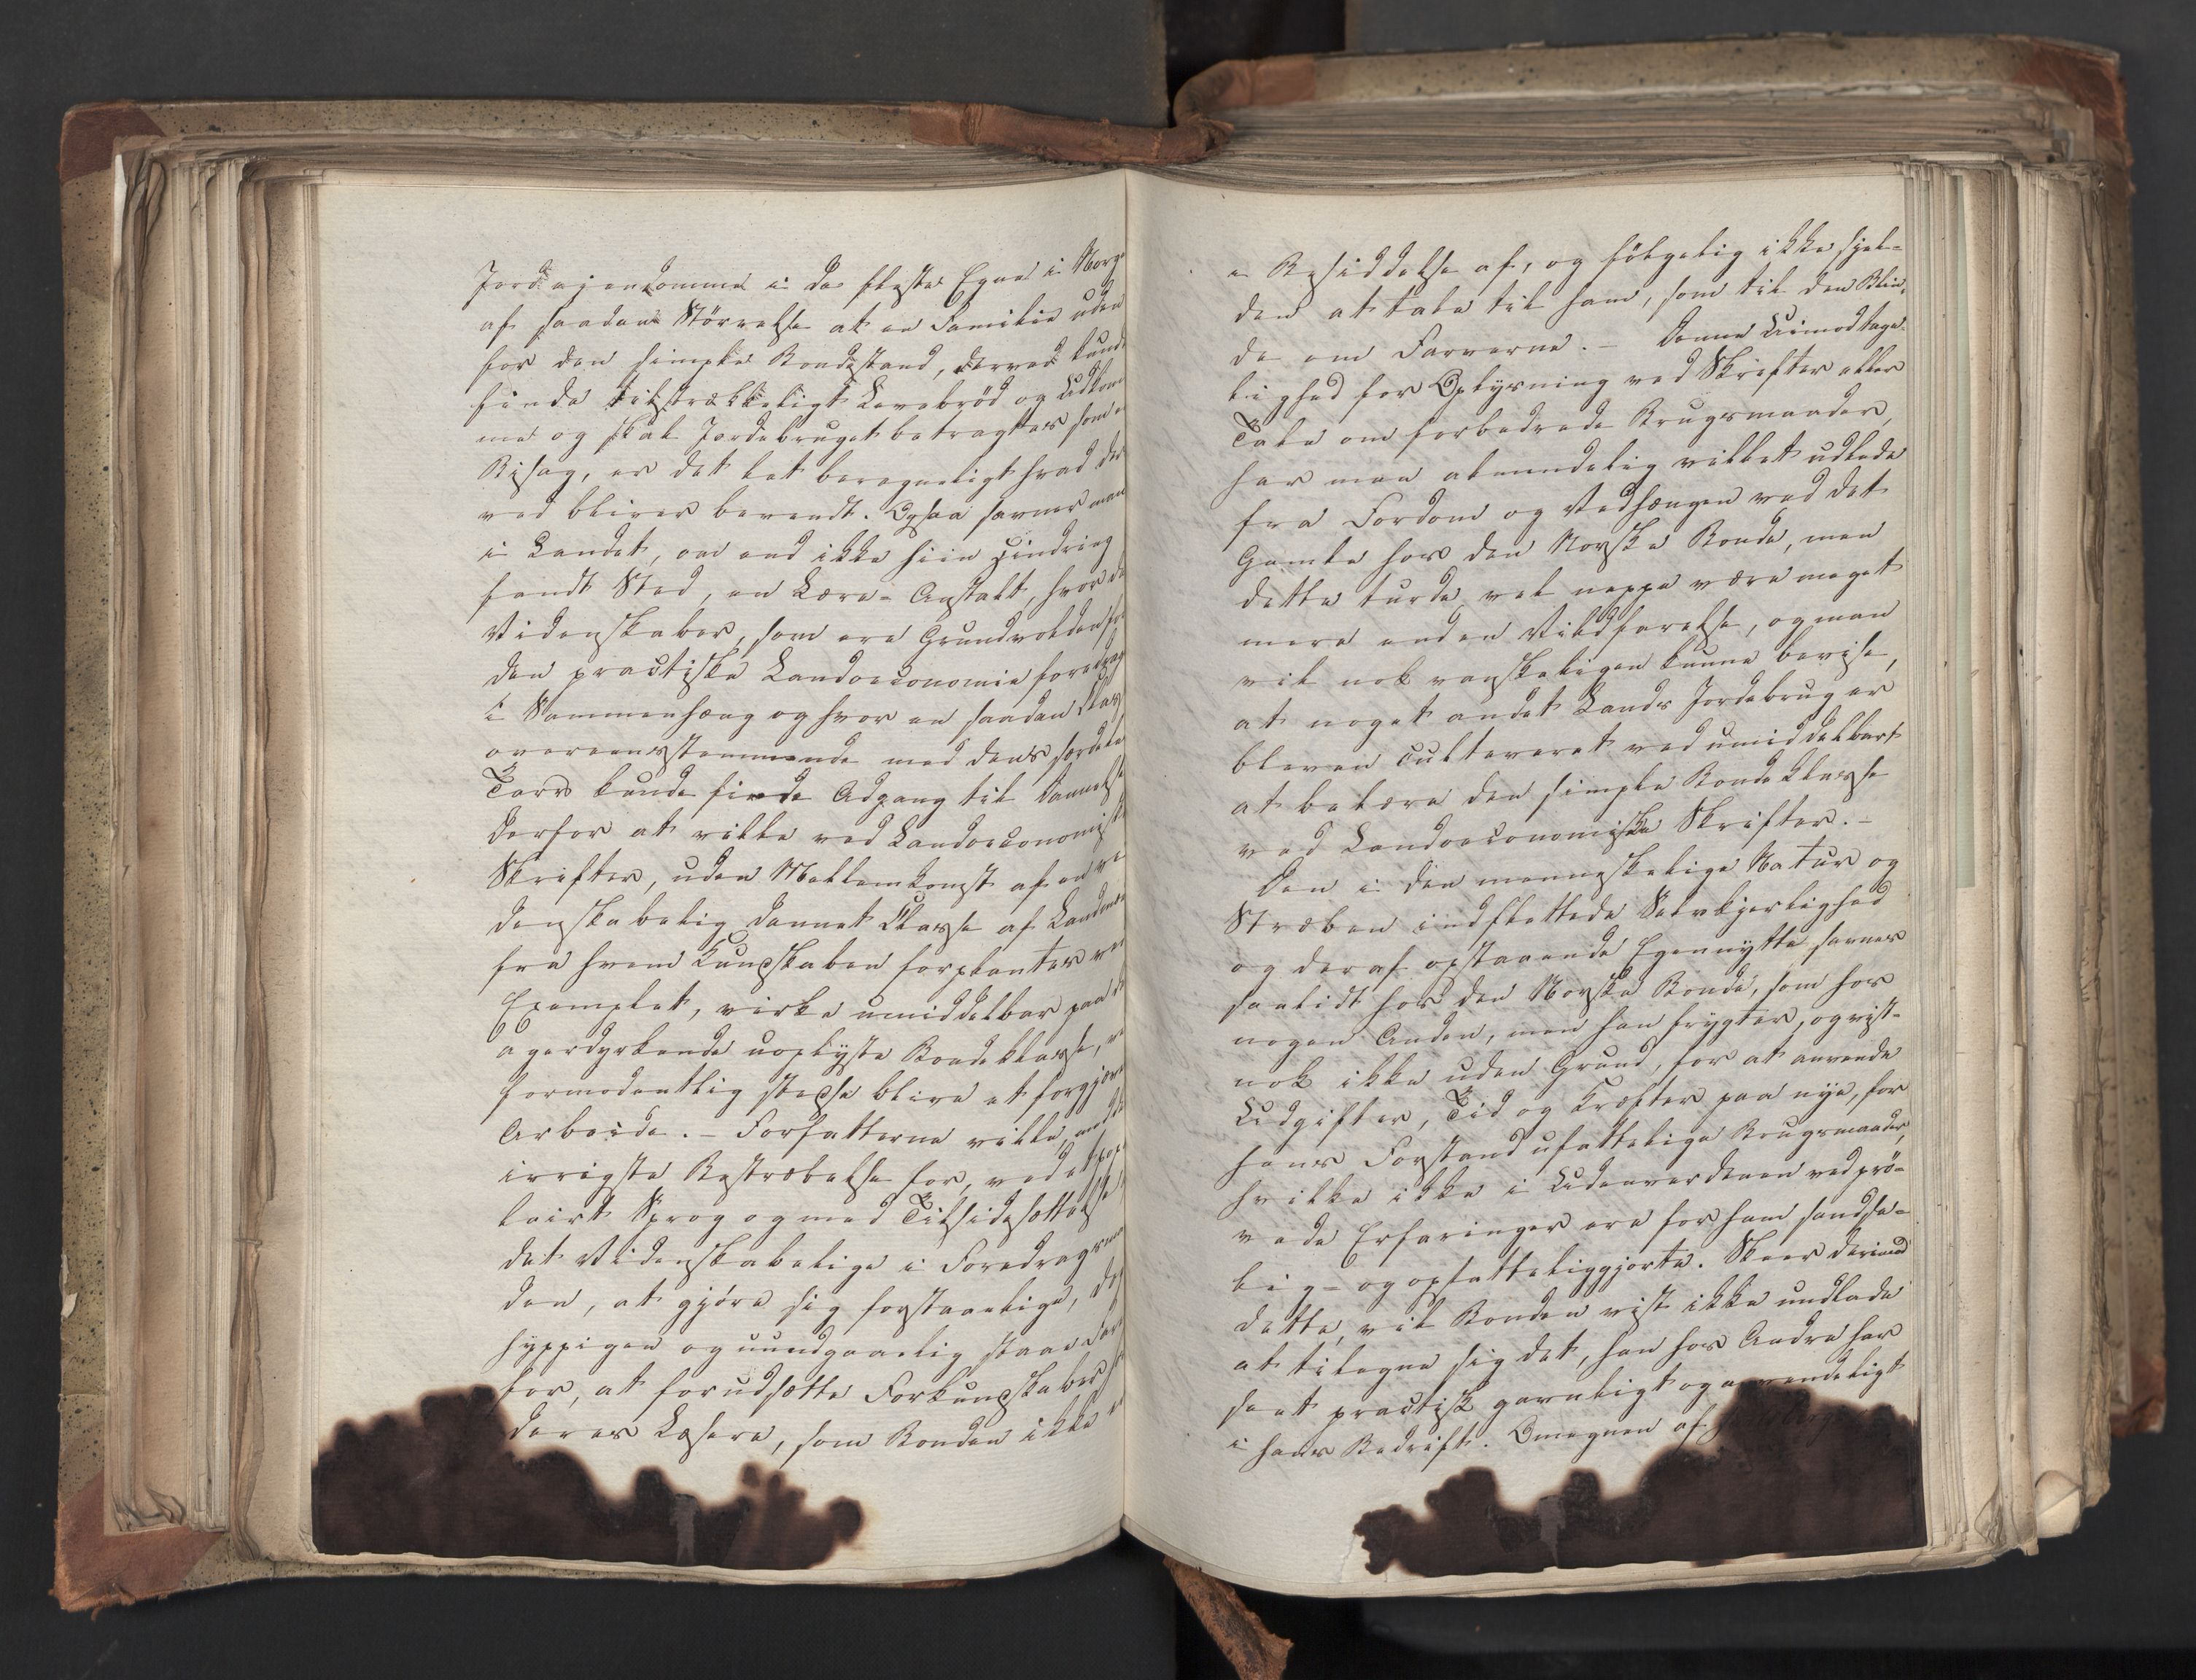 Jordejendomme i de fleste Egne i Norge
af saadan Størrelse at en Familie uden
for den simple Bondestand, derved kunde
finde tilstrækkeligt Levebrød og Udkom
me og skal Jordebruget betragtes som en
Bisag, er det let beregneligt hvad der
ved bliver bevendt. Ogsaa savner man
i Landet, om end ikke hiin Hindring
fandt Sted, en Lære-Anstalt, hvor de
Videnskaber, som ere Grundvolden for
den practiske Landoeconomie foredrages
i Sammenhæng og hvor en saadan Klasse
overeensstemmende med dens særdeles
Tarv kunde finde Adgang til Dannelse
derfor at ville ved Landoeconomiske
Skrifter, uden Mellemkomst af en vi
denskabelig dannet Classe af Landmænd
fra hvem Kundskaben forplantes ved
Exemplet, virke umiddelbar paa den
agerdyrkende uoplyste Bondeklasse, vil
formodentlig stedse blive et forgjæves
Arbeide. – Forfatterne ville, end den
ivrigste Bestræbelse for, ved et popu
lairt Sprog og med Tilsidesættelse
det Videnskabelige i Foredragsmaa
den, at gjøre sig forstaaelige, dog
hyppigen og uundgaaelig staae Fare
for, at forudsætte Forkundskaber hos
deres Læsere, som Bonden ikke er
i Besiddelse af, og følgelig ikke sjel-
den at tale til ham, som til den Blin-
de om Farverne. – Denne Uimodtage-
lighed for Oplysning ved Skrifter eller
Tale om forbedrede Brugsmaader,
har man almindelig villet udlede
fra Fordom og Vedhængen ved det
Gamle hos den Norske Bonde, men
dette turde vel neppe være meget
mere end en Vildfarelse, og man
vil nok vanskeligen kunne bevise,
at noget andet Lands Jordebrug er
bleven cultiveret ved umiddelbart
at belære den simple Bondeklasse
ved Landoeconomiske Skrifter. –
Den i den menneskelige Natur og
Stræben indflettede Selvkjerlighed
og deraf opstaaende Egennytte savnes
saalidt hos den Norske Bonde, som hos
nogen Anden, men han frygter, og vist-
nok ikke uden Grund, for at anvende
Udgifter, Tid og Kræfter paa nye, for
hans Forstand ufattelige Brugsmaader,
hvilke ikke i Udenverdenen ved prø-
vede Erfaringer ere for ham sandse-
lig- og opfatteliggjorte. Skeer derimod
dette, vil Bonden vist ikke undlade
at tilegne sig det, han hos Andre har
seet practisk gavnligt og anvendeligt
i hans Bedrift. Omegnen af